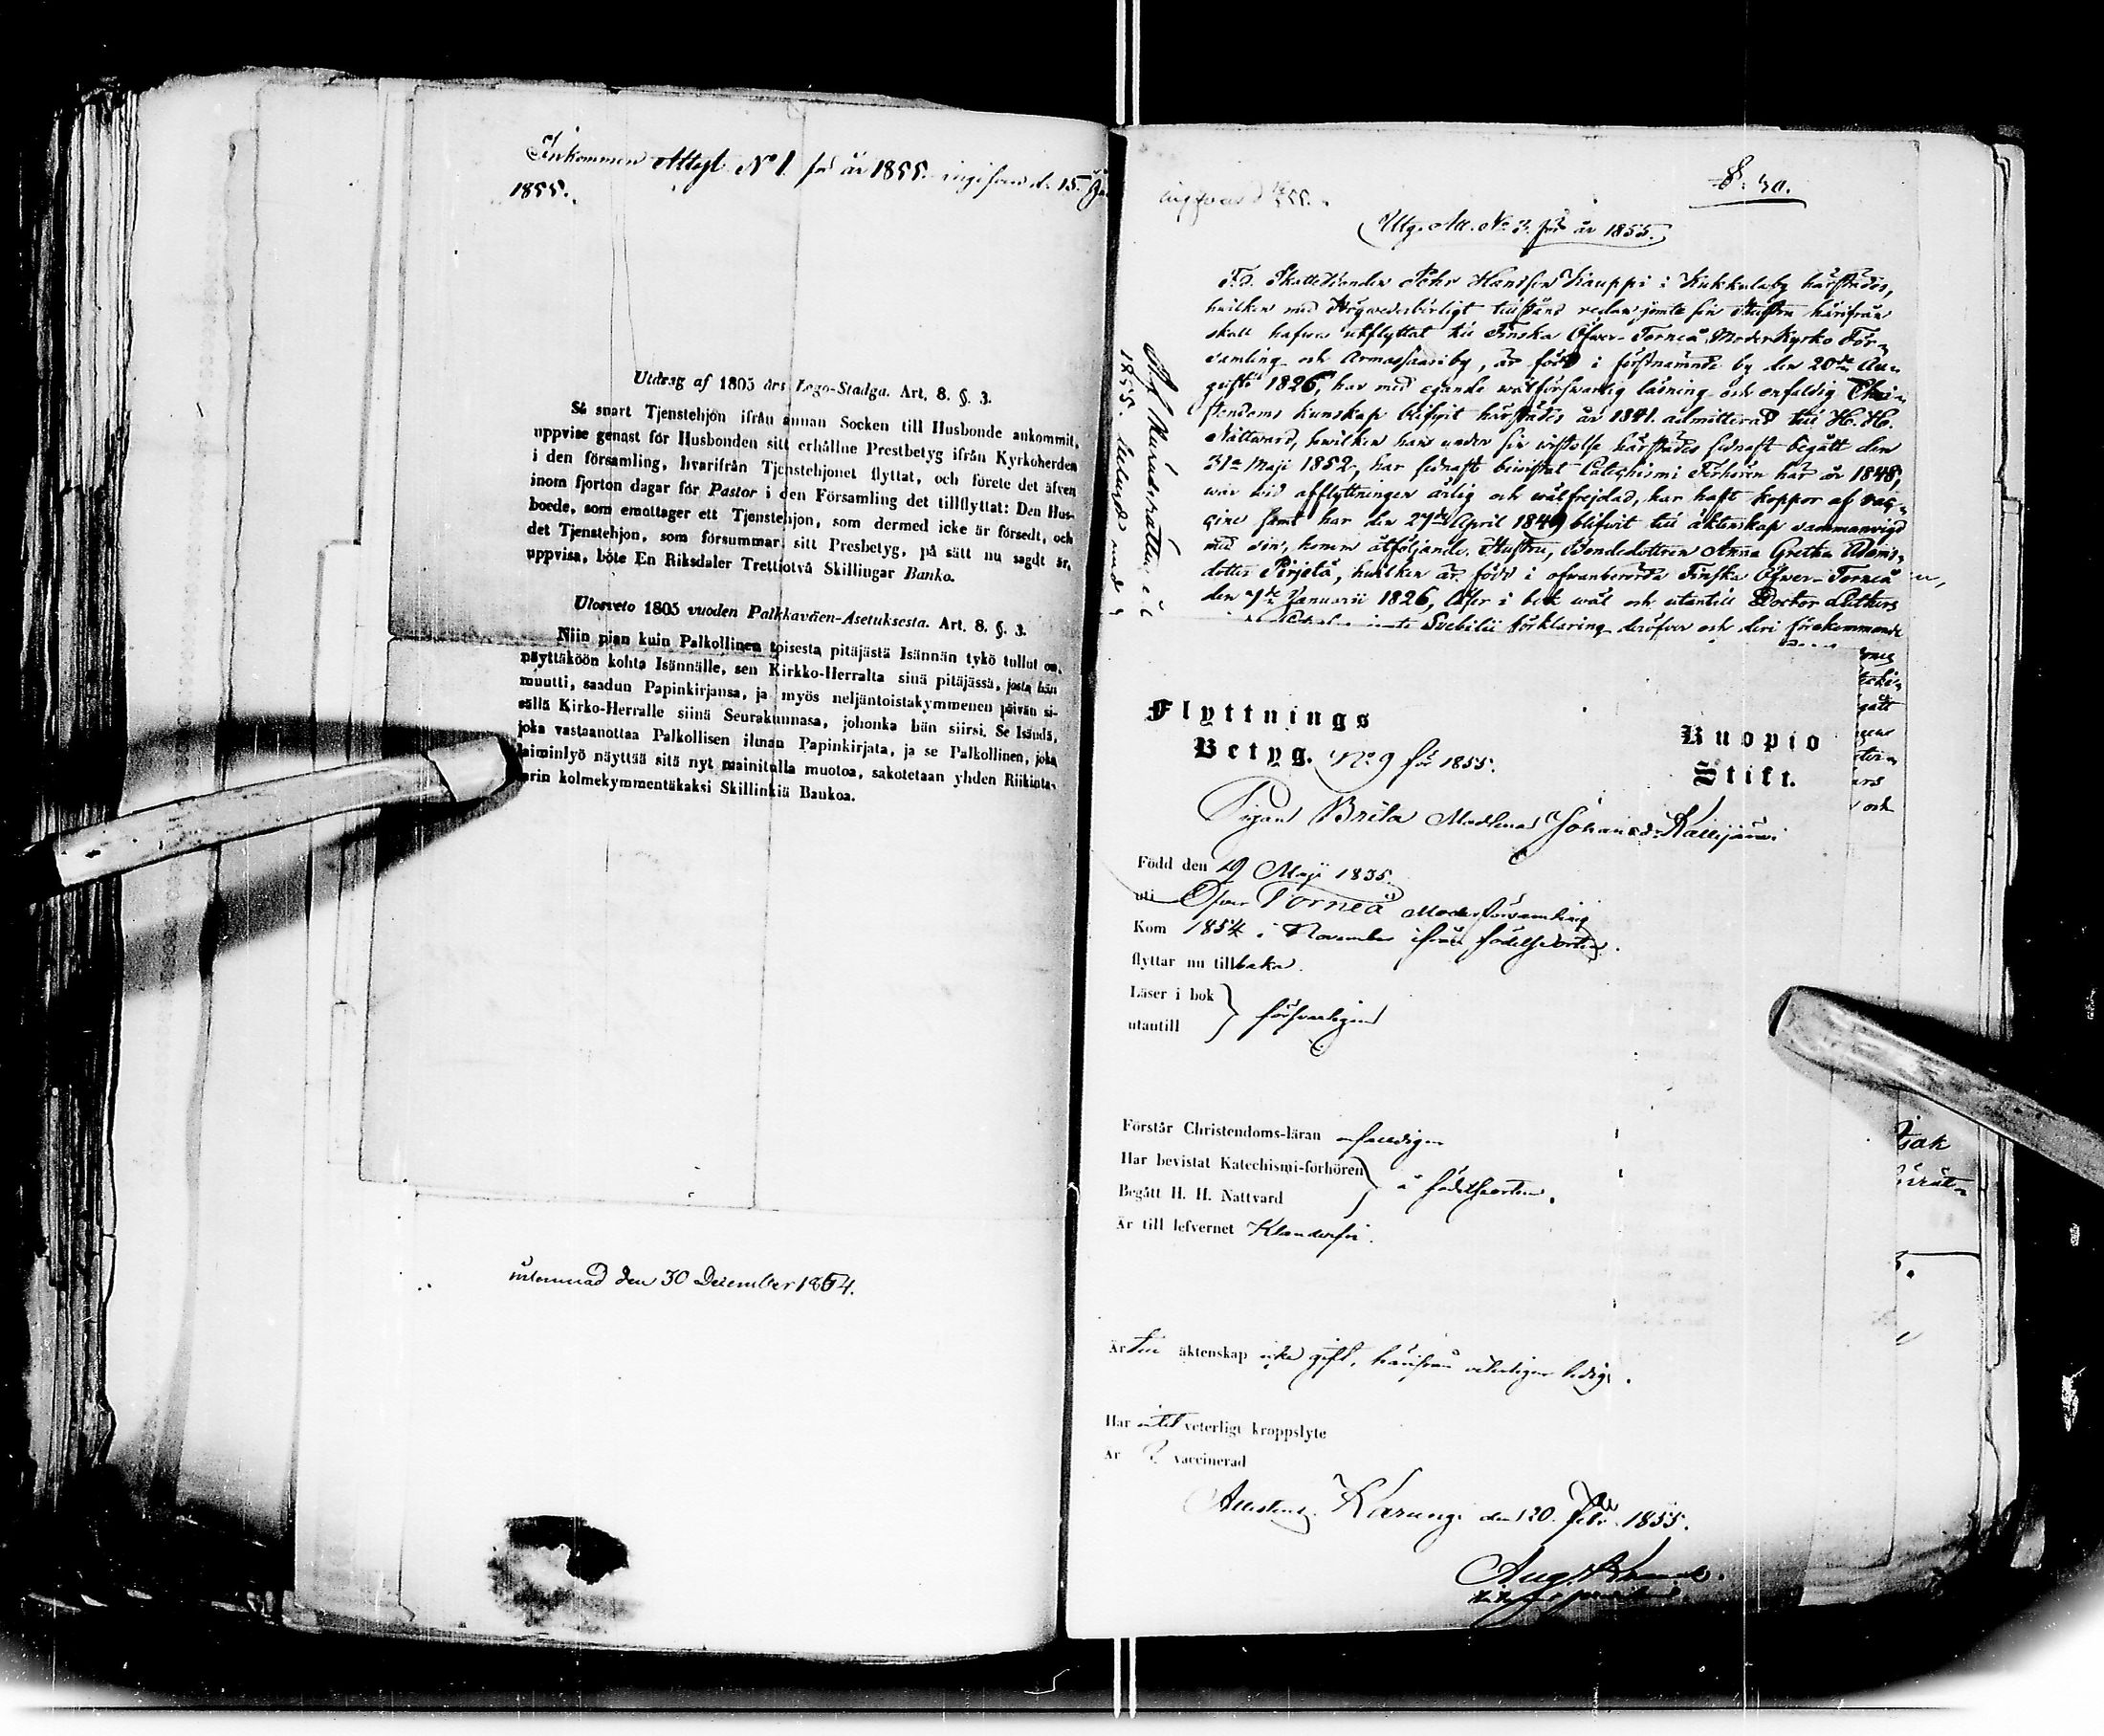 Inkommen Attest No 1 för år 1855. ingifven d. 15
1855.
Utdrag af 1805 års Lego-Stadga. Art. 8. §. 3.
Så snart Tjenstehjon ifrån annan Socken till Husbonde ankommit,
uppvise genast för Husbonden sitt erhållne Prestbetyg ifrån Kyrkoherden
i den församling, hvarifrån Tjenstehjonet flyttat, och förete det äfven
inom fjorton dagar för Pastor i den Församling det tillflyttat: Den Hus-
boede, som emottager ett Tjenstehjon, som dermed icke är försedt, och
det Tjenstehjon, som försummar sitt Presbetyg, på sätt nu sagdt är,
uppvisa, böte En Riksdaler Trettiotvå Skillingar Banko.
Ulosveto 1805 vuoden Palkkaväen-Asetuksesta. Art. 8. §. 3.
Niin pian kuin Palkollinen toisesta pitäjästä Isännän tykö tullut on,
näyttäköön kohta Isännälle, sen Kirkko-Herralta siinä pitäjässä, josta hän
muutti, saadun Papinkirjansa, ja myös neljäntoistakymmenen päivän si-
sällä Kirko-Herralle siinä Seurakunnasa, johonka hän siirsi. Se Isändä,
joka vastaanottaa Palkollisen ilman Papinkirjata, ja se Palkollinen, joka
laiminlyö näyttää sitä nyt mainitulla muotoa, sakotetaan yhden Riikinta-
arin kolmekymmentäkaksi Skillinkiä Bankoa.
den 30 December 1854.
Utg. Att. No 3. för år 1855.
F.d. Skattebonden Pehr Hansson Kauppi i Kukkulaby härstädes,
hvilken med Högvederbörligt tillstånd redan jemte sin Hustru härifrån
skall hafva utflyttat till Finska Öfver-Torneå Moder Kyrko För-
samling och Armassaari by, är född i förstnämnde by den 20de Au-
gusti 1826, har med egande wälförswarlig läsning och enfaldig Chri-
stendoms kunskap blifvit härstädes år 1841 admitterad till H. H.
Nattward, hwilken han under sin wistelse härstädes sednast begått den
31a Maji 1852, har sednast bewistat Catechismi Förhören här år 1848,
war wid afflyttningen ärlig och wälfrejdad, har haft koppor af vac-
cine samt har den 27de April 1849 blifwit till äktenskap sammanwigd
med sin, honom åtföljande, Hustru, Bondedottren Anna Greta Adams-
dotter Pirjetä, hwilken är född i ofvanberörda Finska Öfwer-Torneå
den 7de Januarii 1826, läser i bok wäl och utantill Doctor Luthers
Svebilii förklaring deröfver och deri förekommande
1855.
Flyttnings
Betyg. No 9 för 1855.
Kuopio
Stift.
Pigan Brita Madlena Johansd. Kallijärvi
Född den 19 Maji 1835
uti Öfver Torneå Moderförsamling
Kom 1854 i November ifrån födelseorten.
flyttar nu tillbaka.
Läser i bok
utantill
försvarligen
Förstår Christendoms-läran enfaldigen
Har bevistat Katechismi-förhören
Begått H. H. Nattvard
å födelseorten.
Är till lefvernet Klanderfri.
Är till äktenskap icke gift, härifrån veterligen ledig.
Har intet veterligt kroppslyte
Är ? vaccinerad
Attesterar. Karungi den 20. Febr. 1855.